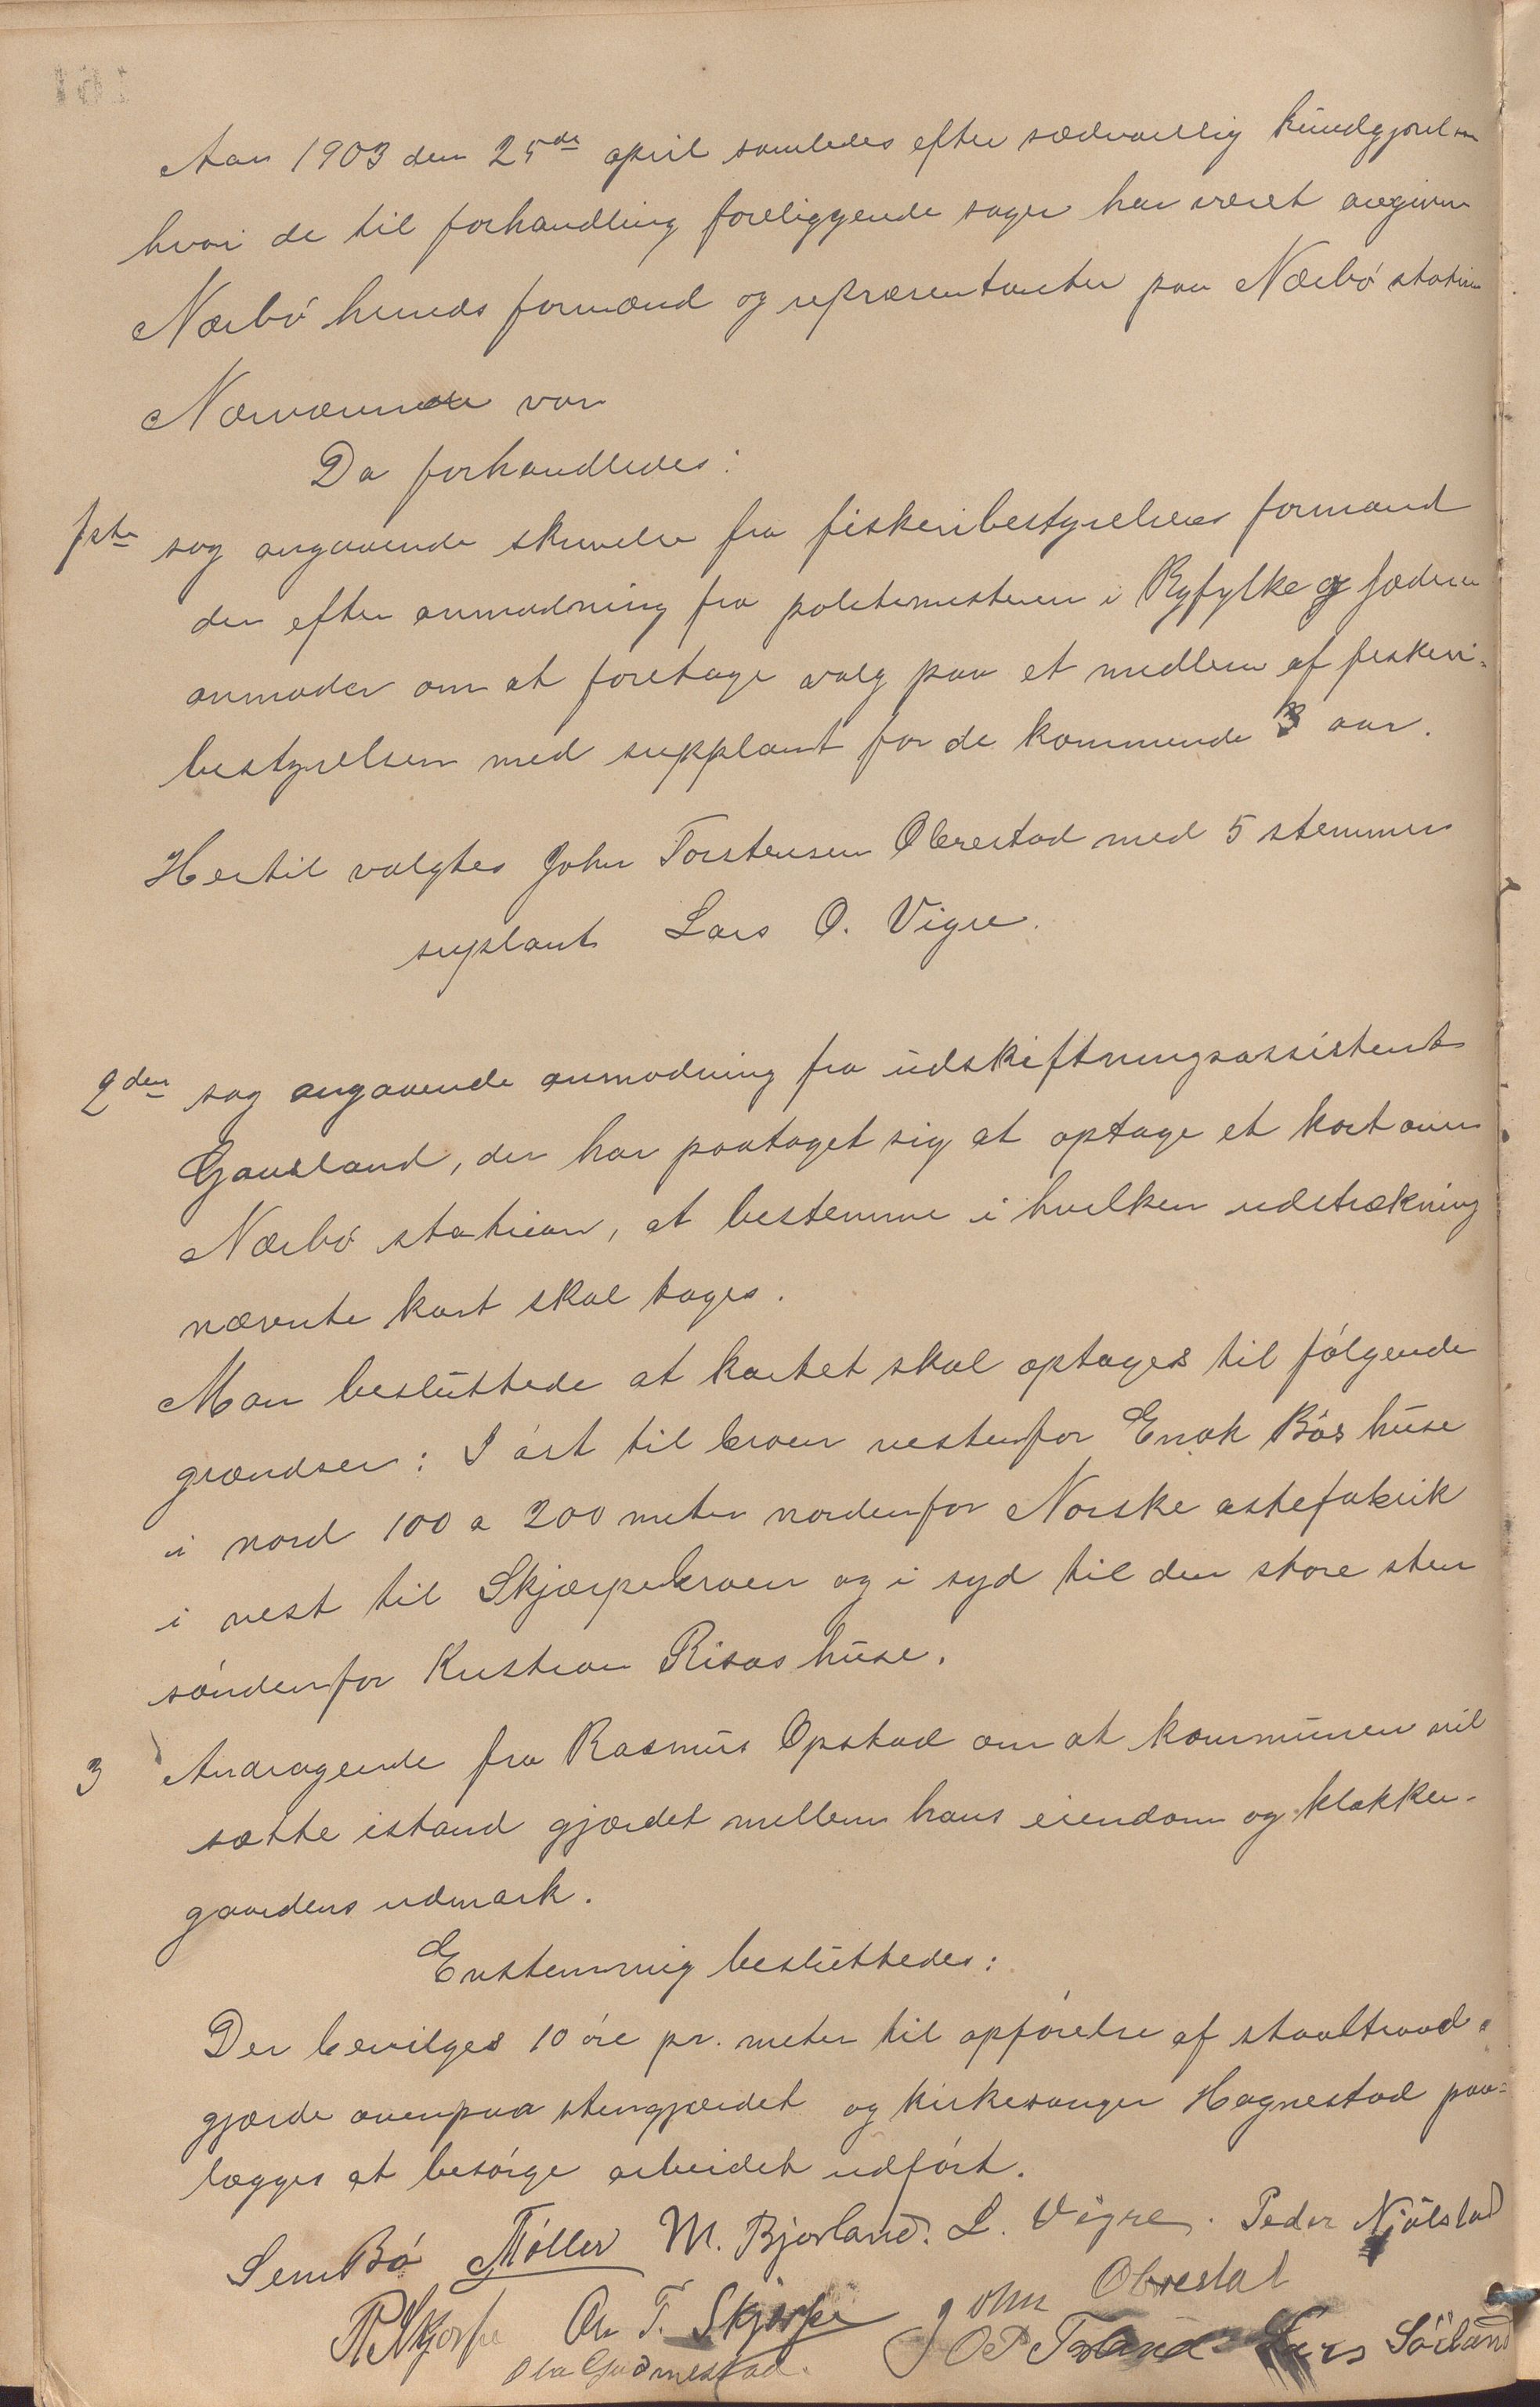 Aar 1903 den 25de april samledes efter sædvanlig kundgjørelse
hvori de til forhandling foreliggende sager har været angivne
Nærbø herreds formænd og repræsentanter paa Nærbø station
Nærværende var
Da forhandledes:
1ste sag angaaende skrivelse fra fiskeribestyrelsens formand
der efter anmodning fra politimesteren i Ryfylke og Jæderen
anmoder om at foretage valg paa et medlem af fiskeri-
bestyrelsen med supplant for de kommende 3 aar.
Hertil valgtes John Torstensen Obrestad med 5 stemmer
suplant Lars O. Vigre.
2den sag angaaende anmodning fra udskiftningsassistent
Gausland, der har paataget sig at optage et kart over
Nærbø station, at bestemme i hvilken udstrækning
nævnte kart skal tages.
Man besluttede at kartet skal optages til følgende
grændser: I øst til broen vestenfor Enok Bøs huse
i nord 100 a 200 meter nordenfor Norske ostefabrik
i vest til Skjærpebroen og i syd til den store sten
søndenfor Kristian Risas huse.
3 Andragende fra Rasmus Opstad om at kommunen vil
sætte istand gjærdet mellem hans eiendom og klokker-
gaardens udmark.
Enstemmig besluttedes:
Der bevilges 10 øre pr. meter til opførelse af staaltraad-
gjærde ovenpaa stengjærdet og kirkesanger Hognestad paa-
lægges at besørge arbeidet udført.
Sem Bø Møller M. Bjorland. L. Vigre. Peder Njølstad
R Skjorpe Ou T. Skjorpe John Obrestad
Ola Gudmestad. O P Torland Lars Söiland